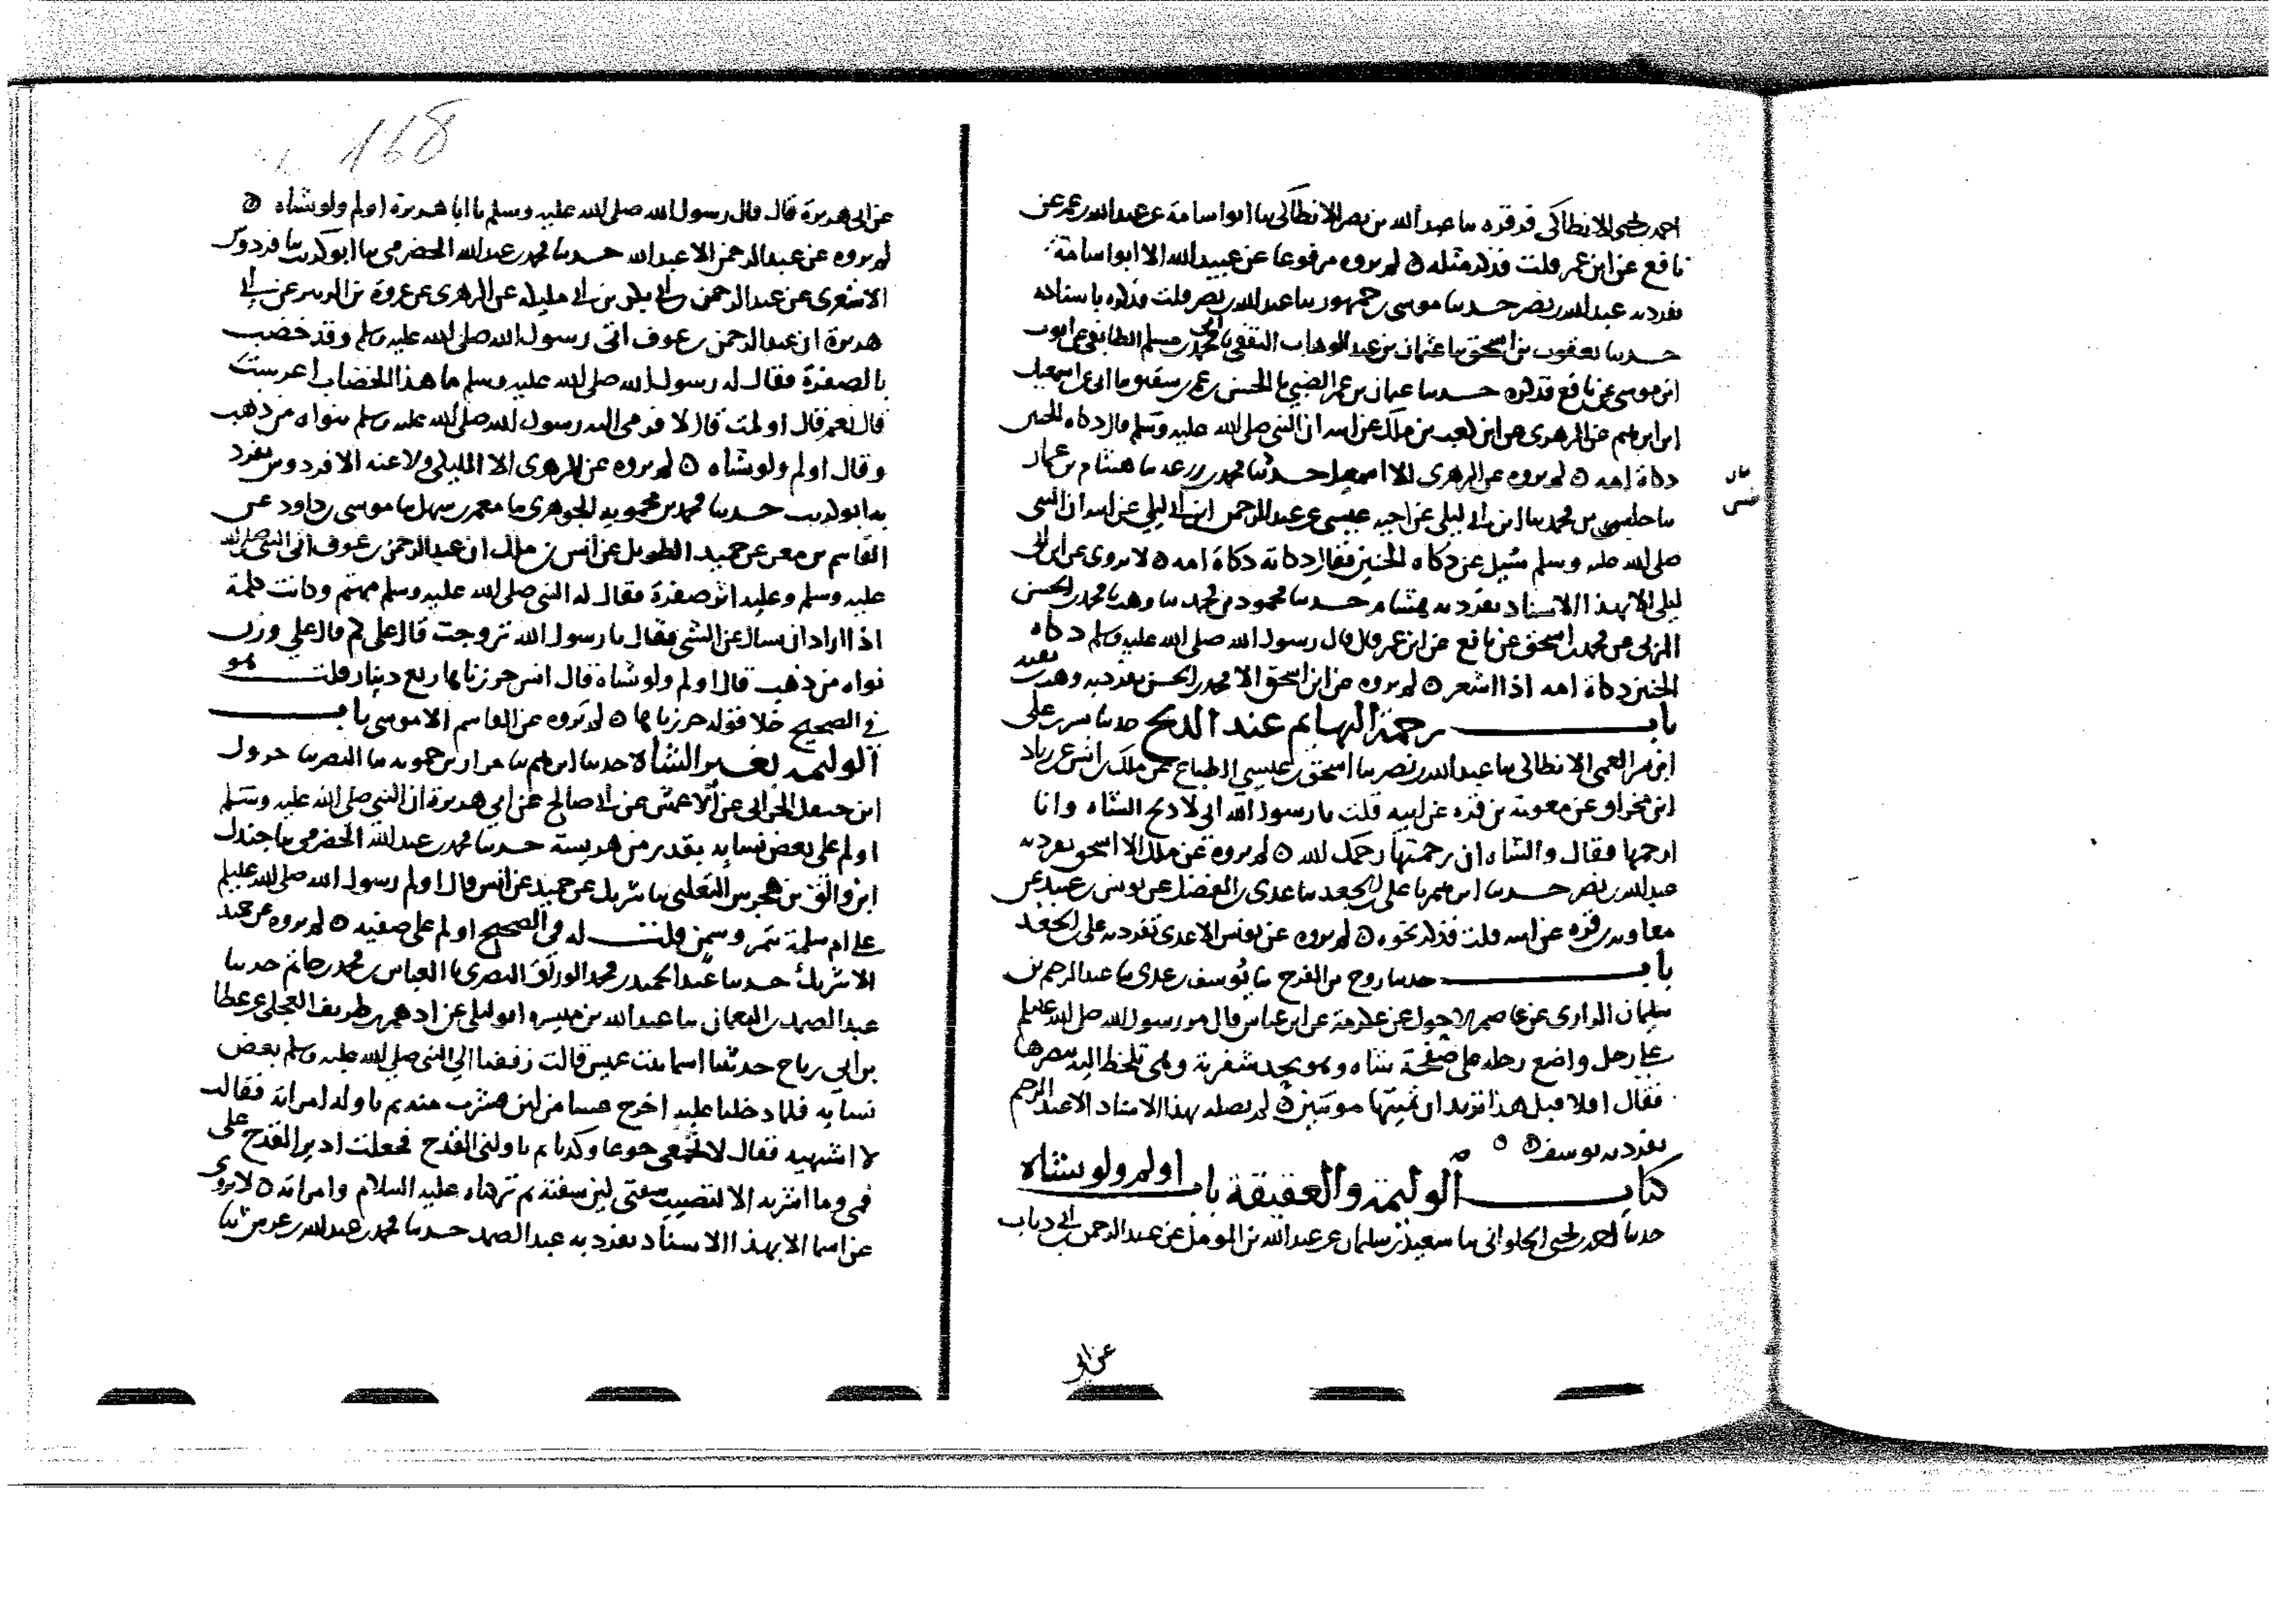 احمد بن يحيى الانطاكي قرقره سا عبد الله بن نصر الانطاكي سا ابو اسامة عن عبد الله بن عمر عن
نافع عن ابن عمر قلت فذكر مثله ٥ لم يروه مرفوعا عن عبيد الله الا ابو اسامة
تفرد به عبد الله بن نصر حدسا موسى بن جمهور سا عبد الله بن نصر قلت فذكره باسناده
حدسا يعقوب بن اسحق سا عثمان بن عبد الوهاب الثقفي سا ابي سا محمد بن مسلم الطائفي عن ايوب
ابن موسى عن نافع فذكره حدسا بن عمر الضبي سا الحسن بن عمر بن سا ابي عن اسمعيل
ابن ابرهيم عن الزهري عن ابن كعب بن ملك عن ابيه ان النبي صلى الله عليه وسلم قال ذكاة الجنين
ذكاة امه ٥ لم يروه عن الزهري الا اسمعيل حدثنا محمد بن زرعه سا هشام بن عمار
سا بن محمد سا ابن ابي ليلى عن اخيه عيسى عن عبد الرحمن ابن ابي ليلى عن ابيه ان النبي
صلى الله عليه وسلم سئل عن ذكاة الجنين فقال ذكاته ذكاة امه ٥ لا يروى عن ابن ابي
ليلى الا بهذا الاسناد تفرد به هشام حدسا محمود بن محمد سا وهب سا محمد بن الحسن
المزني عن محمد بن اسحق عن نافع عن ابن عمر قال قال رسول الله صلى الله عليه وسلم ذكاة
الجنين ذكاة امه اذا اشعر ٥ لم يروه عن ابن اسحق الا محمد بن الحسن تفرد به وهب بن بقيه
باب رحمة البهايم عند الذبح حدسا بن علي
ابن العمي الانطاكي سا عبد الله بن نصر سا اسحق بن عيسى الطباع عن ملك بن انس عن زياد
ابن مخراق عن معوية بن قرة عن ابيه قلت يا رسول الله اني لاذبح الشاة وانا
ارحمها فقال والشاة ان رحمتها رحمك الله ٥ لم يروه عن ملك الا اسحق تفرد به
عبد الله بن نصر حدسا ابرهيم سا علي بن الجعد سا عدي بن الفضل عن يونس بن عبيد عن
معاوية بن قرة عن ابيه قلت فذكر نحوه ٥ لم يروه عن يونس الا عدي تفرد به علي بن الجعد
باب حدسا روح بن الفرج سا يوسف بن عدي سا عبد الرحيم بن
سليمان الرازي عن عاصم الاحول عن عكرمة عن ابن عباس قال مر رسول الله صلى الله عليه وسلم
على رجل واضع رجله على صفحة شاة وهو يحد شفرته وهي تلحظ اليه ببصرها
فقال افلا قبل هذا تريد ان تميتها موتتين ٥ لم يصله بهذا الاسناد الا عبد الرحيم
تفرد به يوسف ٥ ٥
كتاب الوليمة والعقيقة باب اولم ولو بشاة
حدسا احمد بن يحيى الحلواني سا سعيد بن سليمان عن عبد الله بن المومل عن عبد الرحمن بن ابي ذباب
عن ابي
168
عن ابي هريرة قال قال رسول الله صلى الله عليه وسلم يا ابا هريرة اولم ولو بشاة ٥
لم يروه عن عبد الرحمن الا عبد الله حدسا محمد بن عبد الله الحضرمي سا ابو كريب سا فردوس
الاشعري عن عبد الرحمن بن ابي بكر بن ابي مليكه عن الزهري عن عروة بن الزبير عن ابي
هريرة ان عبد الرحمن بن عوف اتى رسول الله صلى الله عليه وسلم وقد خضب
بالصفرة فقال له رسول الله صلى الله عليه وسلم ما هذا الخضاب اعرست
قال نعم قال اولمت قال لا فرمى اليه رسول الله صلى الله عليه وسلم بنواه من ذهب
وقال اولم ولو بشاه ٥ لم يروه عن الزهري الا المليكي ولا عنه الا فردوس تفرد
به ابو كريب حدسا محمد بن محمويه الجوهري سا معمر بن سهل سا موسى بن داود عن
القاسم بن معن عن حميد الطويل عن انس بن ملك ان عبد الرحمن بن عوف اتى النبي صلى الله
عليه وسلم وعليه اثر صفرة فقال له النبي صلى الله عليه وسلم مهيم وكانت كلمة
اذا اراد ان يسال عن الشي فقال يا رسول الله تزوجت قال على كم قال على وزن
نواه من ذهب قال اولم ولو بشاة قال انس حرزناها ربع دينار قلت هو
في الصحيح خلا قوله حرزناها ٥ لم يروه عن القاسم الا موسى باب
الوليمة بغير الشاة حدسا ابرهيم سا مرار بن حمويه سا النضر سا حرول
ابن الحراني عن الاعمش عن ابي صالح عن ابي هريرة ان النبي صلى الله عليه وسلم
اولم على بعض نسايه بقدر من هريسة حدسا محمد بن عبد الله الحضرمي سا جندل
ابن والق بن هجرس التغلبي سا شريك عن حميد عن انس قال اولم رسول الله صلى الله عليه وسلم
على ام سلمة بتمر وسمن قلت له في الصحيح اولم على صفيه ٥ لم يروه عن حميد
الا شريك حدسا عبد الحميد بن محمد الوراق البصري سا العباس بن محمد بن حاتم حدسا
عبد الصمد بن النعمان سا عبد الله بن ميسره ابو ليلى عن ادهم بن طريف العجلي عن عطا
بن ابي رباح حدثتنا اسما بنت عميس قالت زففنا الى النبي صلى الله عليه وسلم بعض
نسايه فلما دخلنا عليه اخرج عسا من لبن فشرب منه ثم ناوله امراته فقالت
لا اشتهيه فقال لا تجمعي جوعا وكذبا ثم ناولني القدح فجعلت ادير القدح على
فمي وما اشربه الا لتصيب شفتي ثم تركناه عليه السلام وامراته ٥ لا يروى
عن اسما الا بهذا الاسناد تفرد به عبد الصمد حدسا محمد بن عبد الله بن